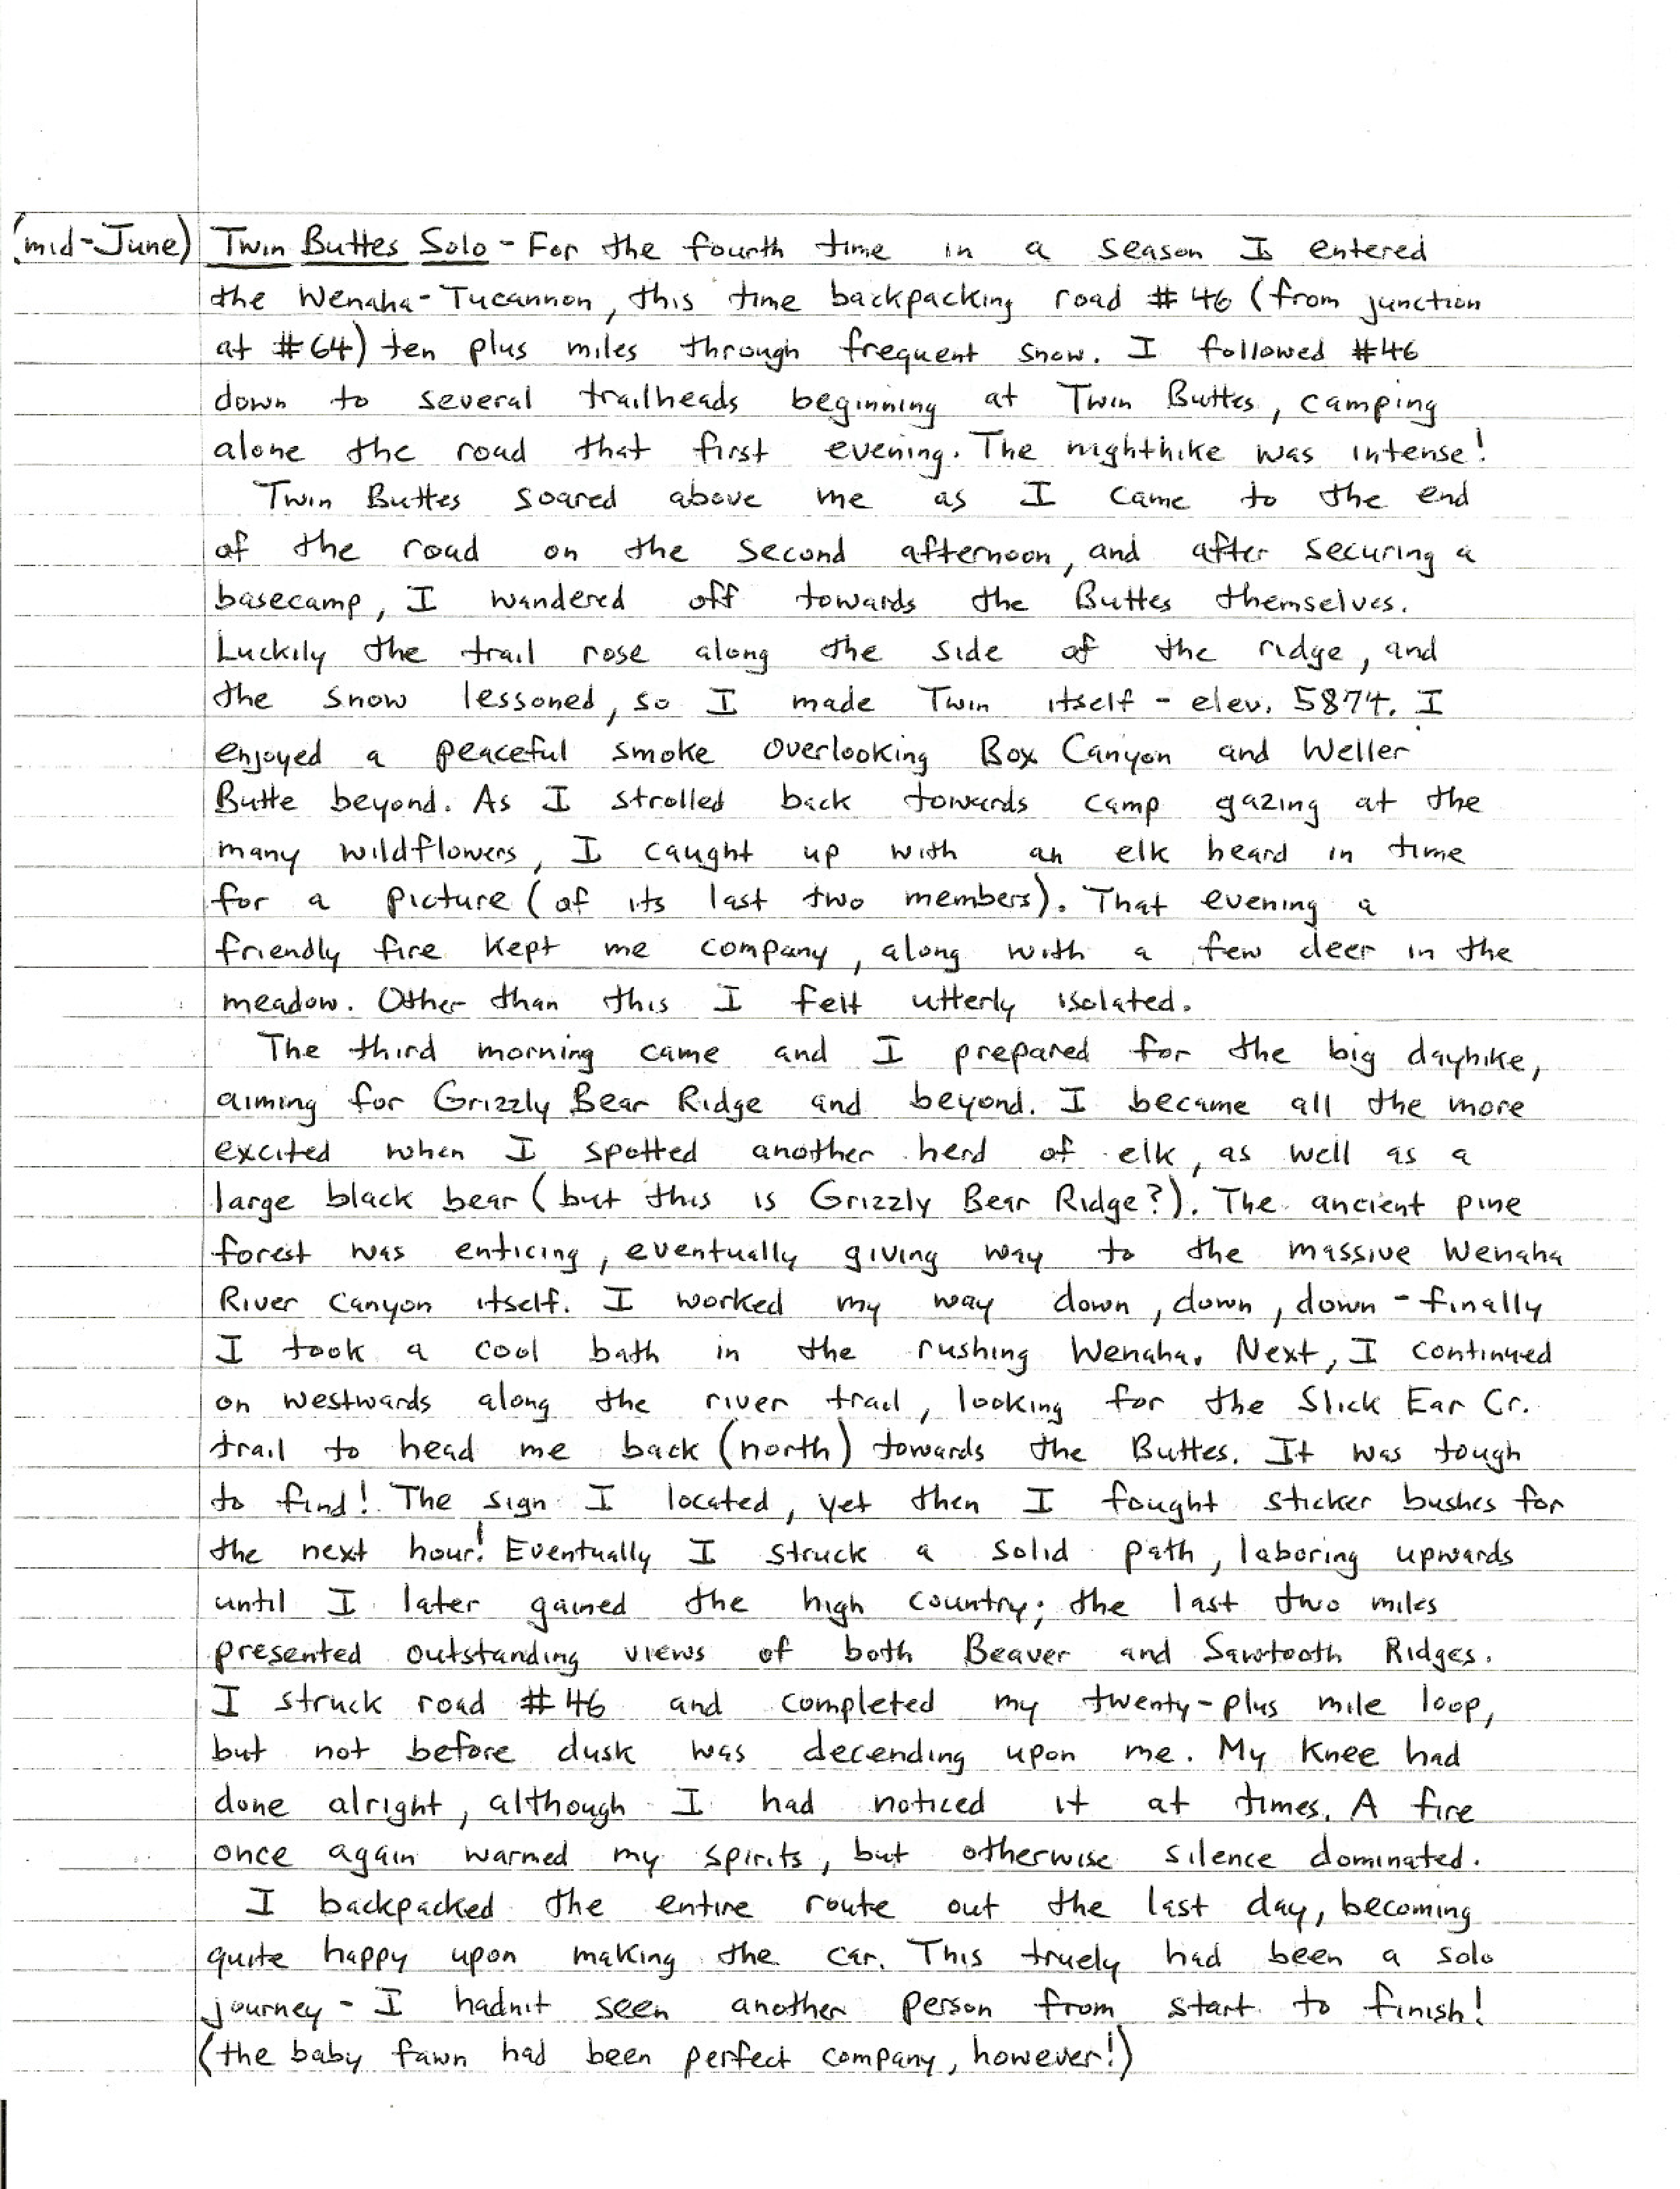 (mid-June) Twin Buttes Solo - For the fourth time in a season I entered
the Wenaha-Tucannon, this time backpacking road #46 (from junction
at #64) ten plus miles through frequent snow. I followed #46
down to several trailheads beginning at Twin Buttes, camping
alone the road that first evening. The nighthike was intense!
Twin Buttes soared above me as I came to the end
of the road on the second afternoon, and after securing a
basecamp, I wandered off towards the Buttes themselves.
Luckily the trail rose along the side of the ridge, and
the snow lessoned, so I made Twin itself - elev. 5874. I
enjoyed a peaceful smoke overlooking Box Canyon and Weller
Butte beyond. As I strolled back towards camp gazing at the
many wildflowers, I caught up with an elk heard in time
for a picture (of its last two members). That evening a
friendly fire kept me company, along with a few deer in the
meadow. Other than this I felt utterly isolated.
The third morning came and I prepared for the big dayhike,
aiming for Grizzly Bear Ridge and beyond. I became all the more
excited when I spotted another herd of elk, as well as a
large black bear (but this is Grizzly Bear Ridge?). The ancient pine
forest was enticing, eventually giving way to the massive Wenaha
River Canyon itself. I worked my way down, down, down - finally
I took a cool bath in the rushing Wenaha. Next, I continued
on westwards along the river trail, looking for the Slick Ear Cr.
trail to head me back (north) towards the Buttes. It was tough
to find! The sign I located, yet then I fought sticker bushes for
the next hour! Eventually I struck a solid path, laboring upwards
until I later gained the high country; the last two miles
presented outstanding views of both Beaver and Sawtooth Ridges.
I struck road #46 and completed my twenty-plus mile loop,
but not before dusk was decending upon me. My knee had
done alright, although I had noticed it at times. A fire
once again warmed my spirits, but otherwise silence dominated.
I backpacked the entire route out the last day, becoming
quite happy upon making the car. This truely had been a solo
journey - I hadn't seen another person from start to finish!
(the baby fawn had been perfect company, however!)